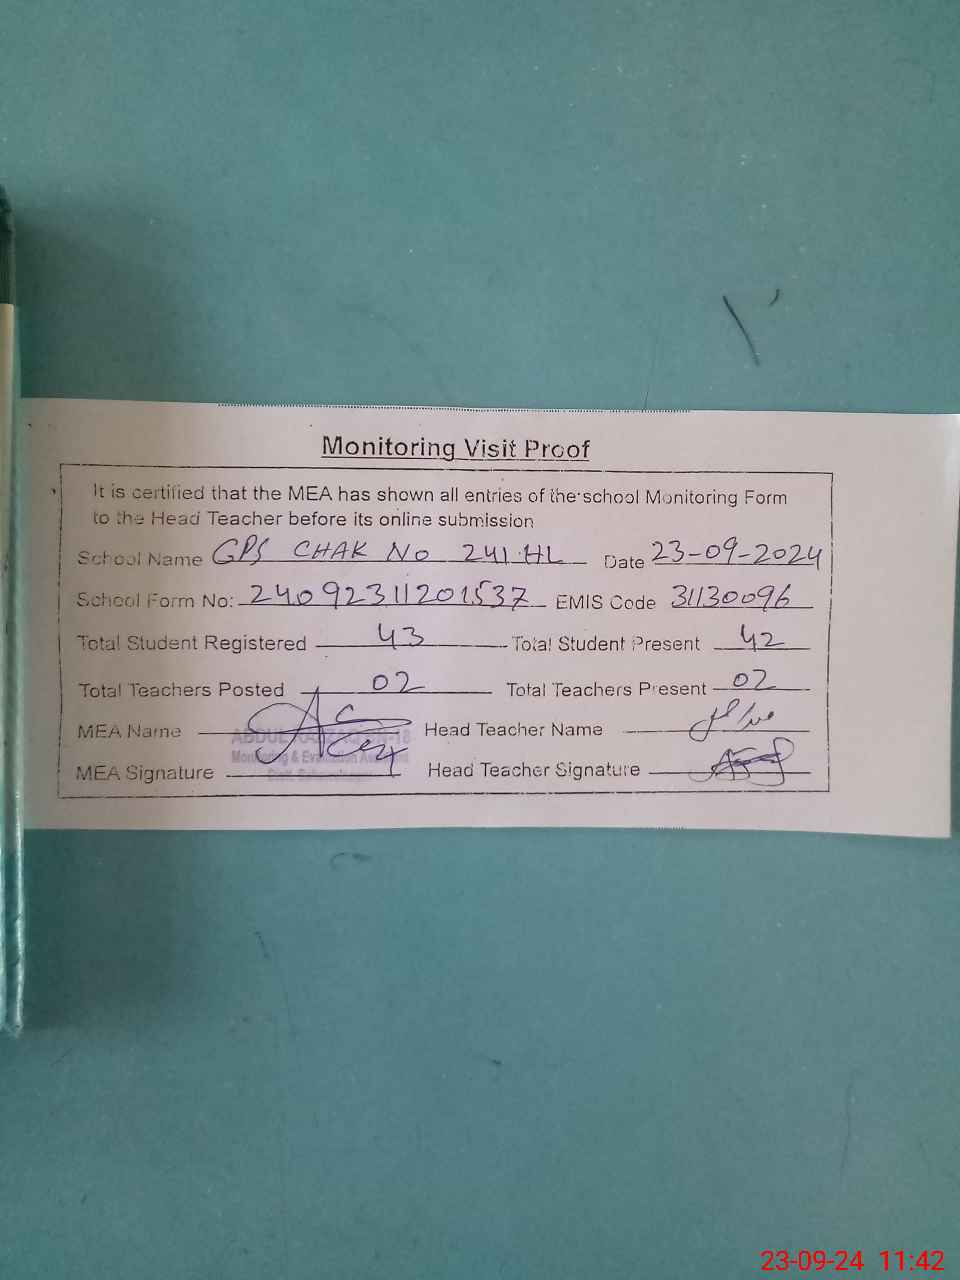 Monitoring Visit Proof
It is certified that the MEA has shown all entries of the school Monitoring Form
to the Head Teacher before its online submission
School Name GPS CHAK No 241.HL Date 23-09-2024
School Form No: 24092311201537 EMIS Code 31130096
Total Student Registered 43 Total Student Present 42
Total Teachers Posted 02 Total Teachers Present 02
MEA Name Head Teacher Name
ABDUL RAZZAQ
Monitoring & Evaluation Assistant
MEA Signature Head Teacher Signature
23-09-24 11:42